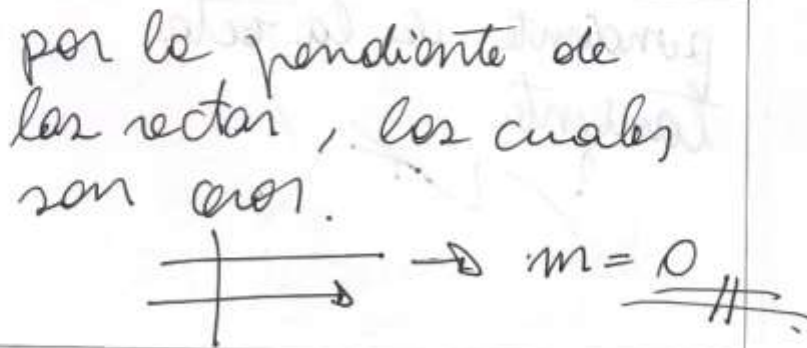 por la pendiente de
las rectas, las cuales
son ceros.
m = 0